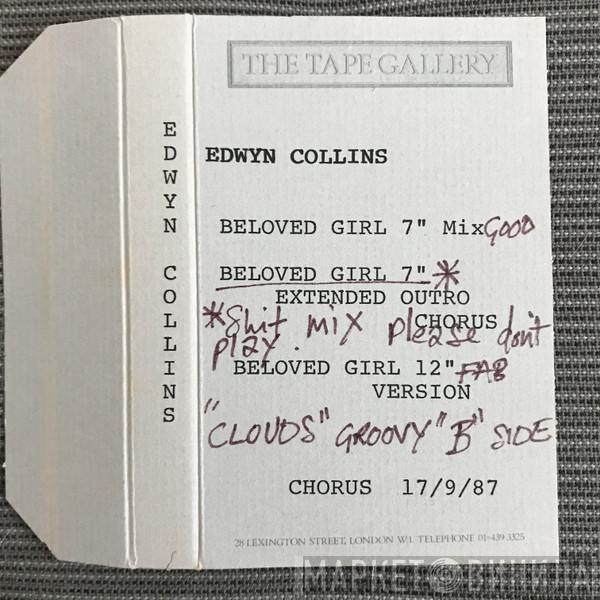 THE TAPE GALLERY
EDWYN COLLINS
EDWYN COLLINS
BELOVED GIRL 7" Mix GOOD
BELOVED GIRL 7" *
EXTENDED OUTRO
CHORUS
*Shit mix please don't
play.
BELOVED GIRL 12" FAB
VERSION
"CLOUDS" GROOVY "B" SIDE
CHORUS 17/9/87
28 LEXINGTON STREET, LONDON W.1. TELEPHONE 01-439 3325
МАРКЕТ ВИНИЛА